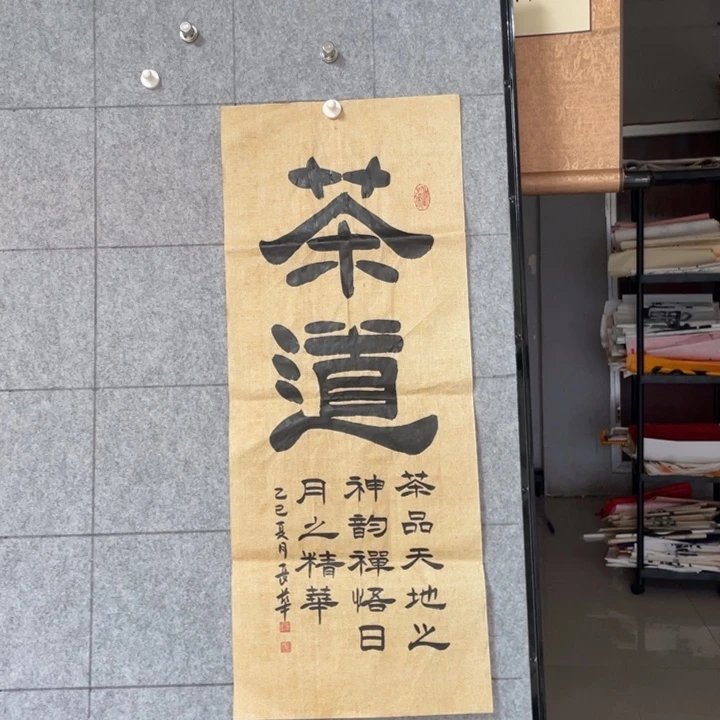 茶道
茶品天地之
神韵禪悟日
月之精華
乙巳夏月長華